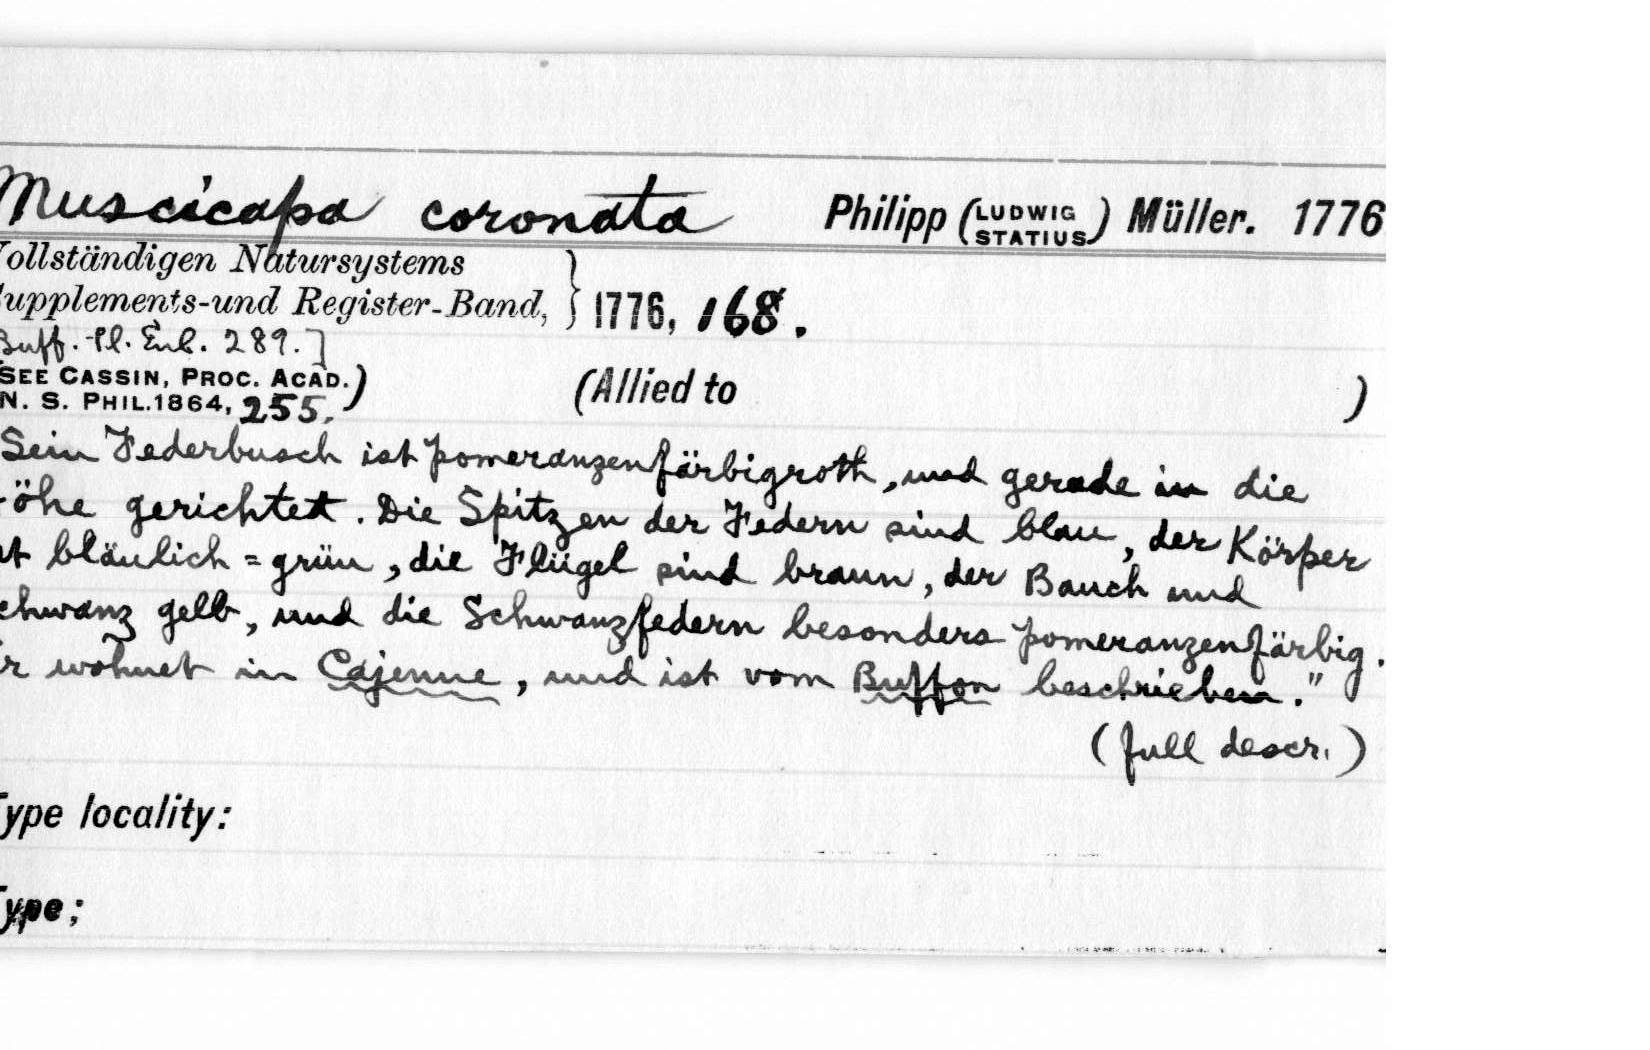 Muscicapa coronata Philipp (LUDWIG STATIUS) Müller. 1776
Vollständigen Natursystems
Supplements-und Register-Band, } 1776, 168.
Buff. Pl. Enl. 289.]
(SEE CASSIN, PROC. ACAD.
N. S. PHIL.1864, 255.) (Allied to )
Sein Federbusch ist pomeranzenfärbigroth, und gerade in die
Höhe gerichtet. Die Spitzen der Federn sind blau, der Körper
ist bläulich=grün, die Flügel sind braun, der Bauch und
Schwanz gelb, und die Schwanzfedern besonders pomeranzenfärbig.
Er wohnet in Cajenne, und ist vom Buffon beschrieben."
(full descr.)
Type locality:
Type;